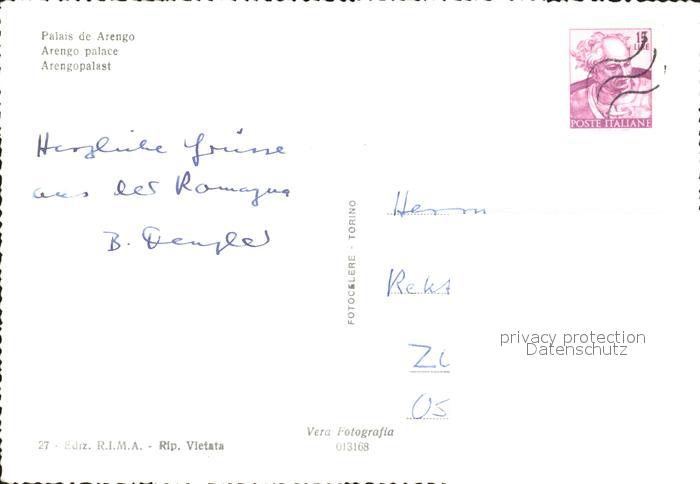 Palais de Arengo
Arengo palace
Arengopalast
15
LIRE
POSTE ITALIANE
Herzliche Grüsse
aus der Romagna
B. Dengler
FOTOCELERE - TORINO
Herrn
Rekt
Zi
privacy protection
Datenschutz
Vera Fotografia
27 - Ediz. R.I.M.A. - Rip. Vietata
013168